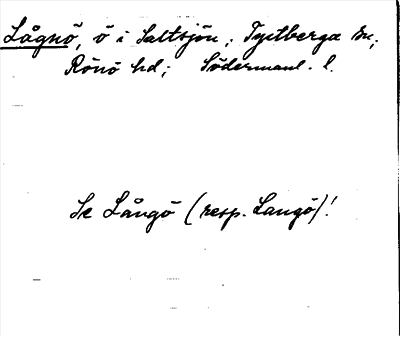 Lågnö, ö i Saltsjön; Tystberga sn;
Rönö hd; Södermanl. l.
Se Långö (resp. Langö)!